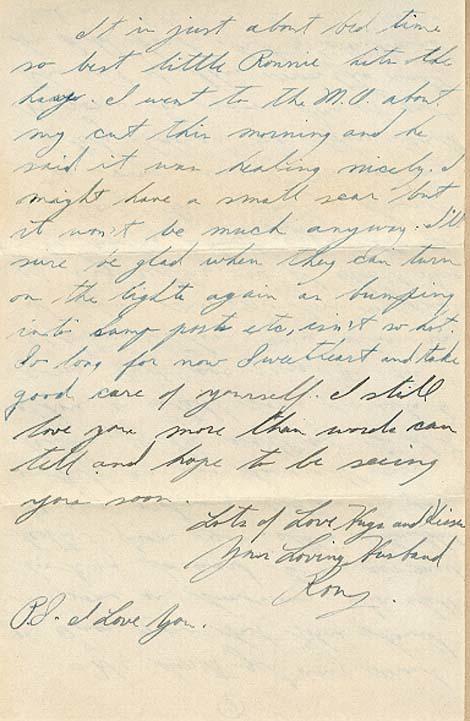 It is just about bed time
so best little Ronnie hits the
hay. I went to the M.O. about
my cut this morning and he
said it was healing nicely. I
might have a small scar but
it won't be much anyway. I'll
sure be glad when they can turn
on the lights again as bumping
into lamp posts etc, isn't so hot.
So long for now Sweetheart and take
good care of yourself. I still
love you more than words can
tell and hope to be seeing
you soon.
Lots of Love Hugs and Kisses
Your Loving Husband
Ron
P.S. I Love You.